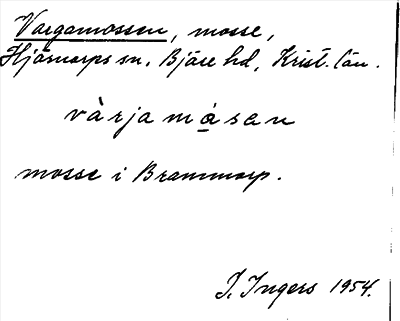 Vargamossen, mosse,
Hjärnarps sn, Bjäre hd, Krist. län.
vàrjamåsen
mosse i Brammarp.
I. Ingers 1954.